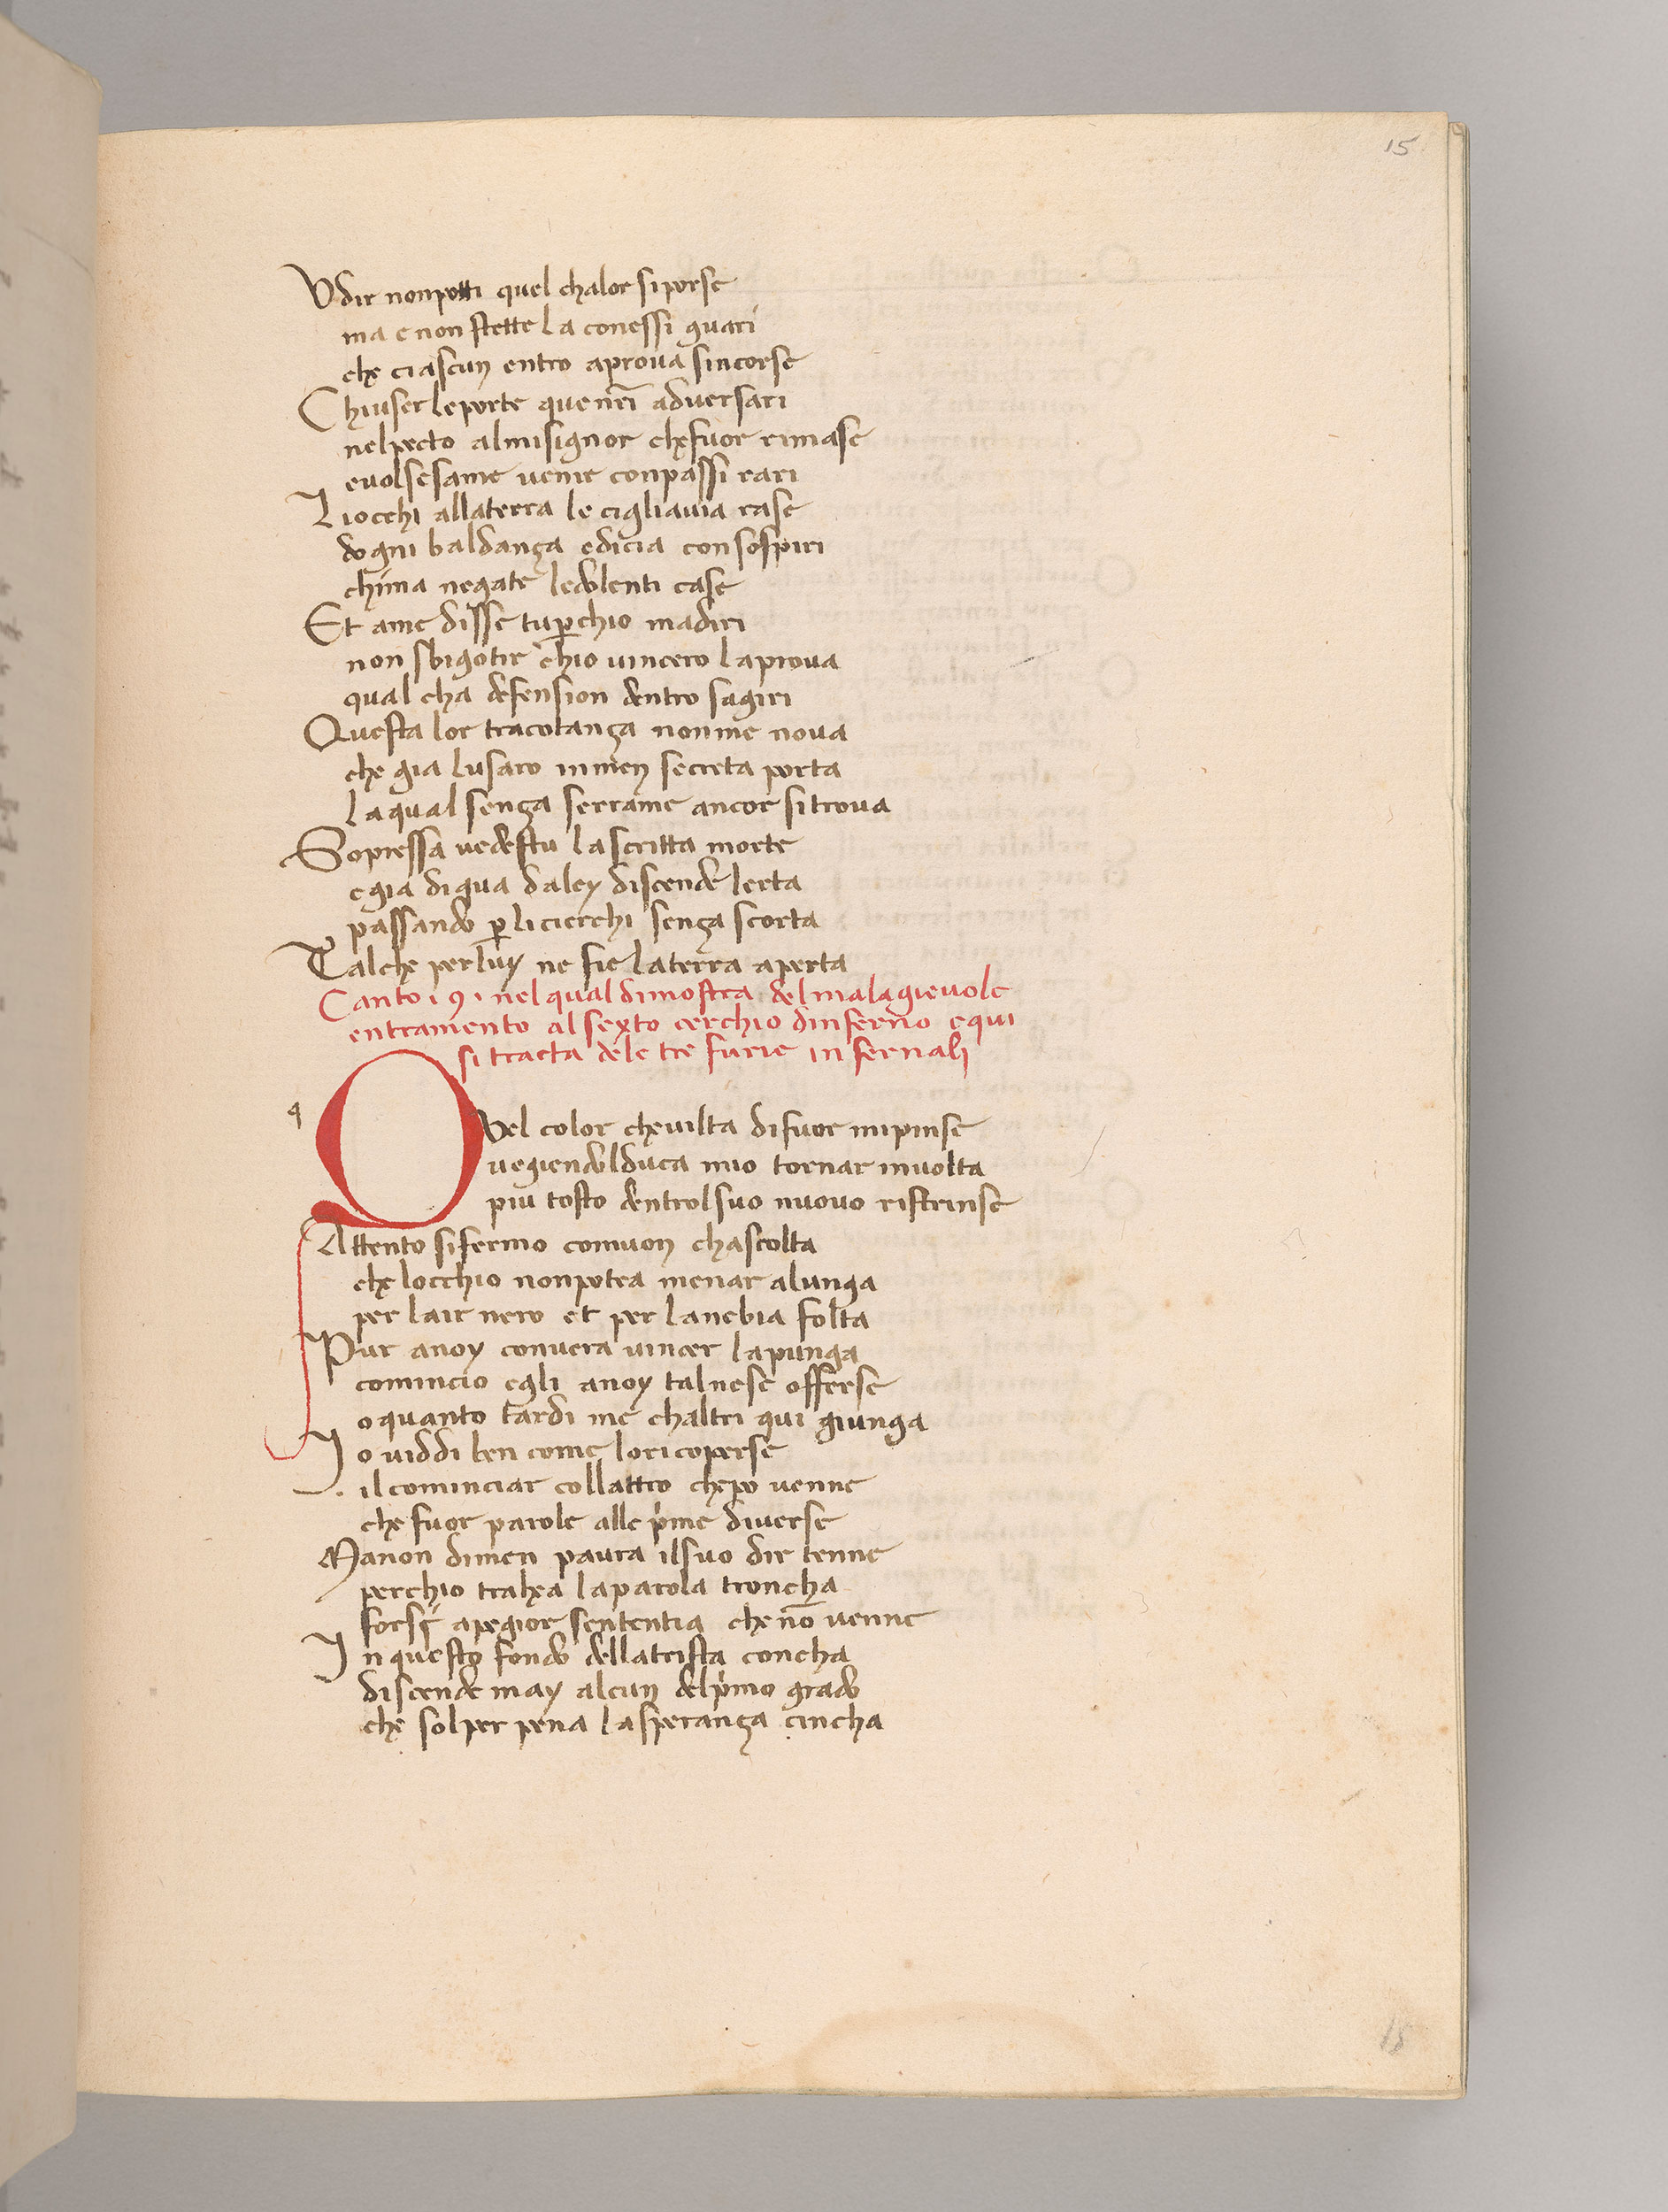 15
Udir nonpotti quel chalor siporse
ma e non stette la conessi guari
che ciascun entro aprova sincorse
Chiuser leporte que nr̄i adversari
nelpecto almisignor chefuor rimase
evolsesame venir conpassi rari
Liocchi allaterra le cigliavia rase
dogni baldanza edicia consospiri
chima negate ledolenti case
Et ame disse tuꝑchio madiri
non sbigotir chio vincero laprova
qual cha defension dentro sagiri
Questa lor tracotanza nonme nova
che gia lusaro inmen secreta porta
laqual senza serrame ancor sitrova
Sopressa vedestu lascritta morte
egia diqua daley discende lerta
passando ꝑ licierchi senza scorta
Talche perluy ne fie laterra aperta
Canto i 9 i nel qual dimostra del malagievole
entramento al sexto cerchio dinferno equi
si tracta dele tre furie infernali
9
Quel color chevilta difuor mipinse
vegiendolduca mio tornar involta
piu tosto dentrolsuo nuovo ristrinse
Attento sifermo comuon chascolta
che locchio nonpotea menar alunga
per lair nero et per lanebia folta
Pur anoy convera vincer lapunga
comincio egli anoy talnese offerse
oquanto tardi me chaltri qui giunga
Io viddi ben come loricoperse
il cominciar collattro chepo venne
che fuor parole alle pͥme diverse
Manon dimen paura ilsuo dir tenne
perchio trahea laparola troncha
forsi apegior sententia che nō venne
In questo fondo dellatrista concha
discende may alcun delpͥmo grado
che solper pena lasperanza cincha
18